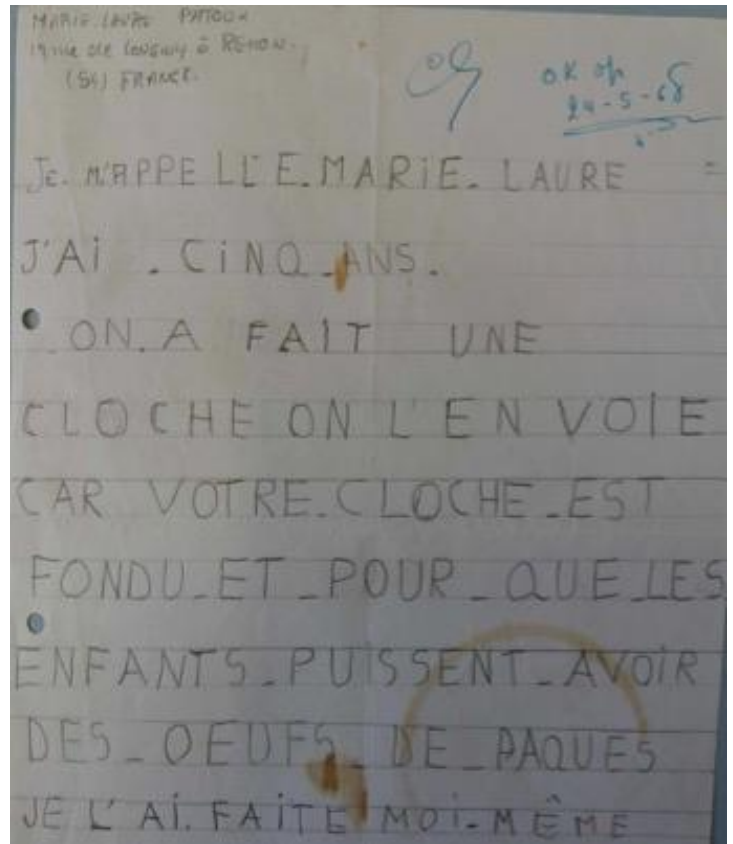 MARIE-LAURE PATTOUX
19 rue de Longwy à REHON.
(54) FRANCE.
OK
24-5-68
Je. M'APPELL'E.MARIE. LAURE
J'Ai . CiNQ_ANS.
ON.A FAIT UNE
CLOCHE ON L'EN VOIE
CAR VOTRE_CLOCHE_EST
FONDU_ET_POUR_QUE_LES
ENFANTS_PUISSENT_AVOIR
DES_OEUFS_DE_PAQUES
JE L'Ai. FAiTE MOi-MÊME